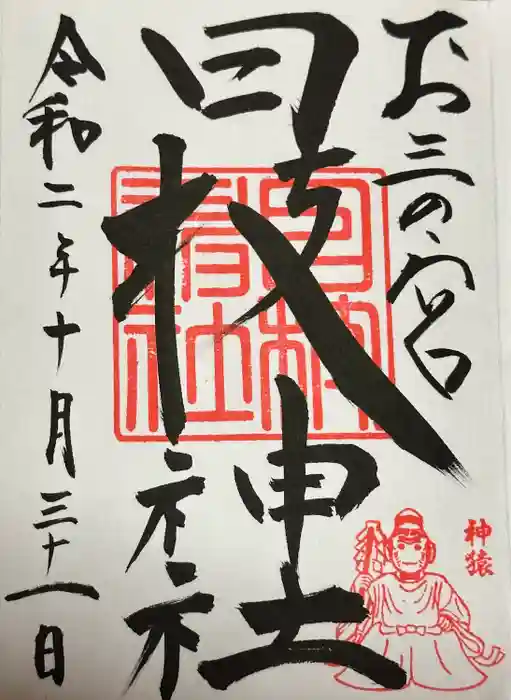 お三の宮
日枝神社
令和二年十月三十一日
神猿